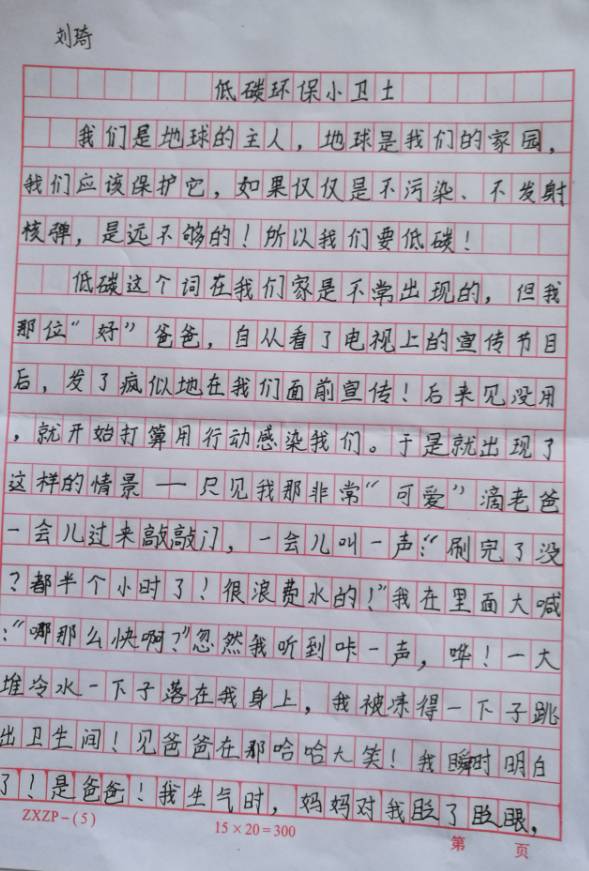 刘琦
低碳环保小卫士
我们是地球的主人，地球是我们的家园，
我们应该保护它，如果仅仅是不污染、不发射
核弹，是远不够的！所以我们要低碳！
低碳这个词在我们家是不常出现的，但我
那位“好”爸爸，自从看了电视上的宣传节目
后，发了疯似地在我们面前宣传！后来见没用
，就开始打算用行动感染我们。于是就出现了
这样的情景——只见我那非常“可爱”滴老爸
一会儿过来敲敲门，一会儿叫一声：“刷完了没
？都半个小时了！很浪费水的！”我在里面大喊
：“哪那么快啊？”忽然我听到咔一声，哗！一大
堆冷水一下子落在我身上，我被冻得一下子跳
出卫生间！见爸爸在那哈哈大笑！我瞬时明白
了！是爸爸！我生气时，妈妈对我眨了眨眼，
ZXZP-(5) 15×20=300 第 页